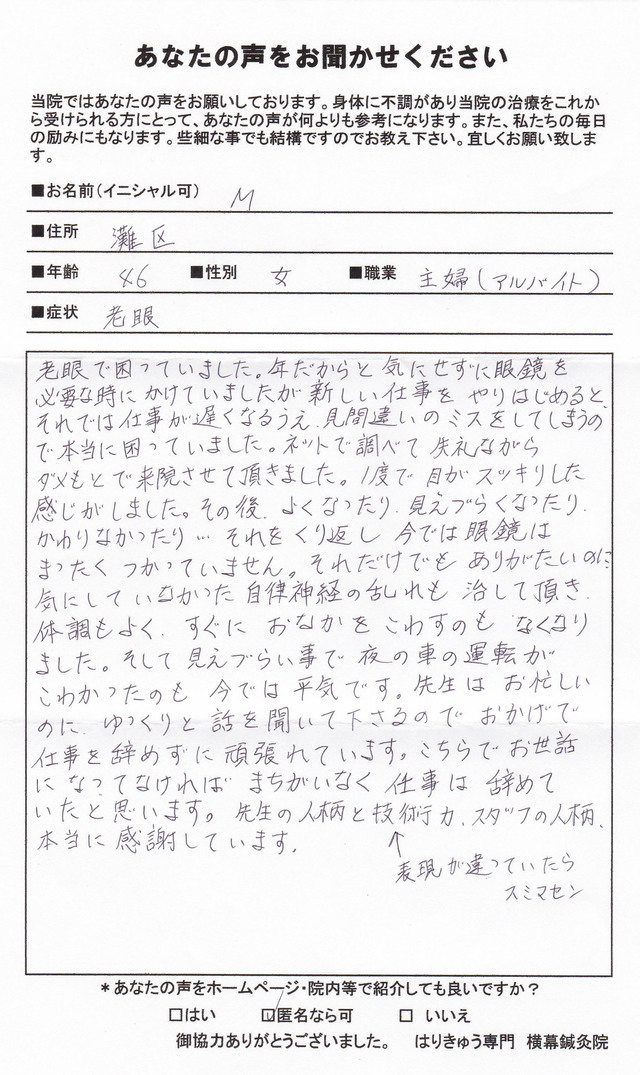 あなたの声をお聞かせください
当院ではあなたの声をお願いしております。身体に不調があり当院の治療をこれか
ら受けられる方にとって、あなたの声が何よりも参考になります。また、私たちの毎日
の励みにもなります。些細な事でも結構ですのでお教え下さい。宜しくお願い致しま
す。
■お名前(イニシャル可) M
■住所 灘区
■年齢 46 ■性別 女 ■職業 主婦(アルバイト)
■症状 老眼
老眼で困っていました。年だからと気にせずに眼鏡を
必要な時にかけていましたが新しい仕事をやりはじめると、
それでは仕事が遅くなるうえ、見間違いのミスをしてしまうの
で本当に困っていました。ネットで調べて失礼ながら
ダメもとで来院させて頂きました。1度で目がスッキリした
感じがしました。その後、よくなったり、見えづらくなったり、
かわりなかったり…それをくり返し今では眼鏡は
まったくつかっていません。それだけでもありがたいのに、
気にしていなかった自律神経の乱れも治して頂き、
体調もよく、すぐにおなかをこわすのもなくなり
ました。そして見えづらい事で夜の車の運転が
こわかったのも今では平気です。先生はお忙しい
のに、ゆっくりと話を聞いて下さるのでおかげで
仕事を辞めずに頑張れています。こちらでお世話
になってなければまちがいなく仕事は辞めて
いたと思います。先生の人柄と技術力、スタッフの人柄、
本当に感謝しています。
↑
表現が違っていたら
スミマセン
*あなたの声をホームページ・院内等で紹介しても良いですか?
□はい ☑匿名なら可 □いいえ
御協力ありがとうございました。 はりきゅう専門 横幕鍼灸院